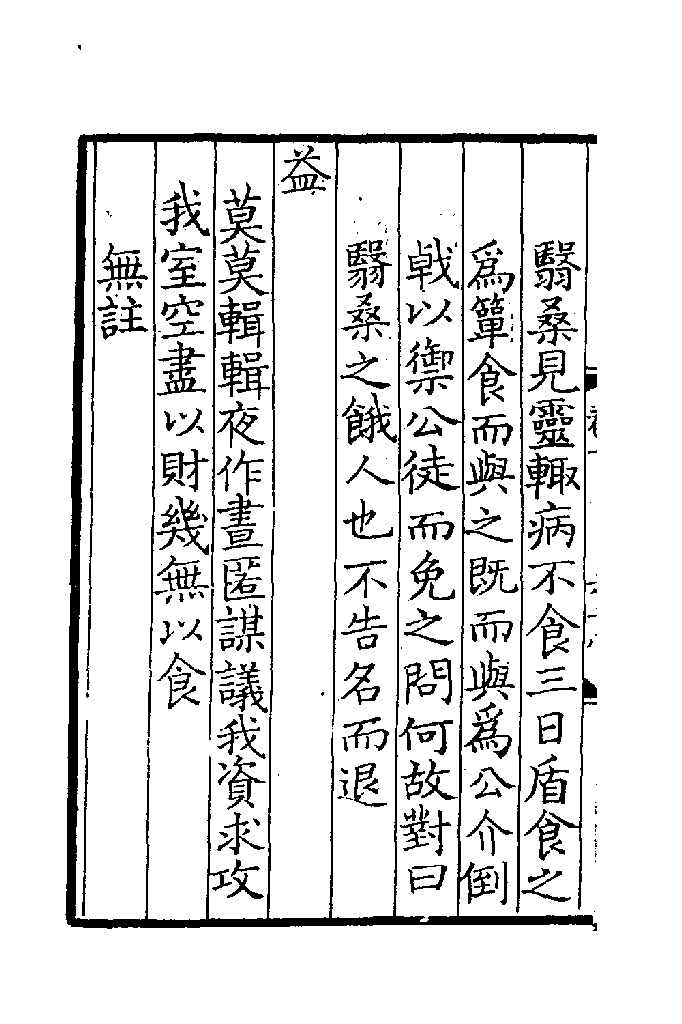 翳桑見靈輙病不食三日盾食之
爲簞食而與之既而與爲公介倒
戟以禦公徒而免之問何故對曰
翳桑之餓人也不告名而退
益
莫莫輯輯夜作晝匿謀議我資求攻
我室空盡以財幾無以食
無註